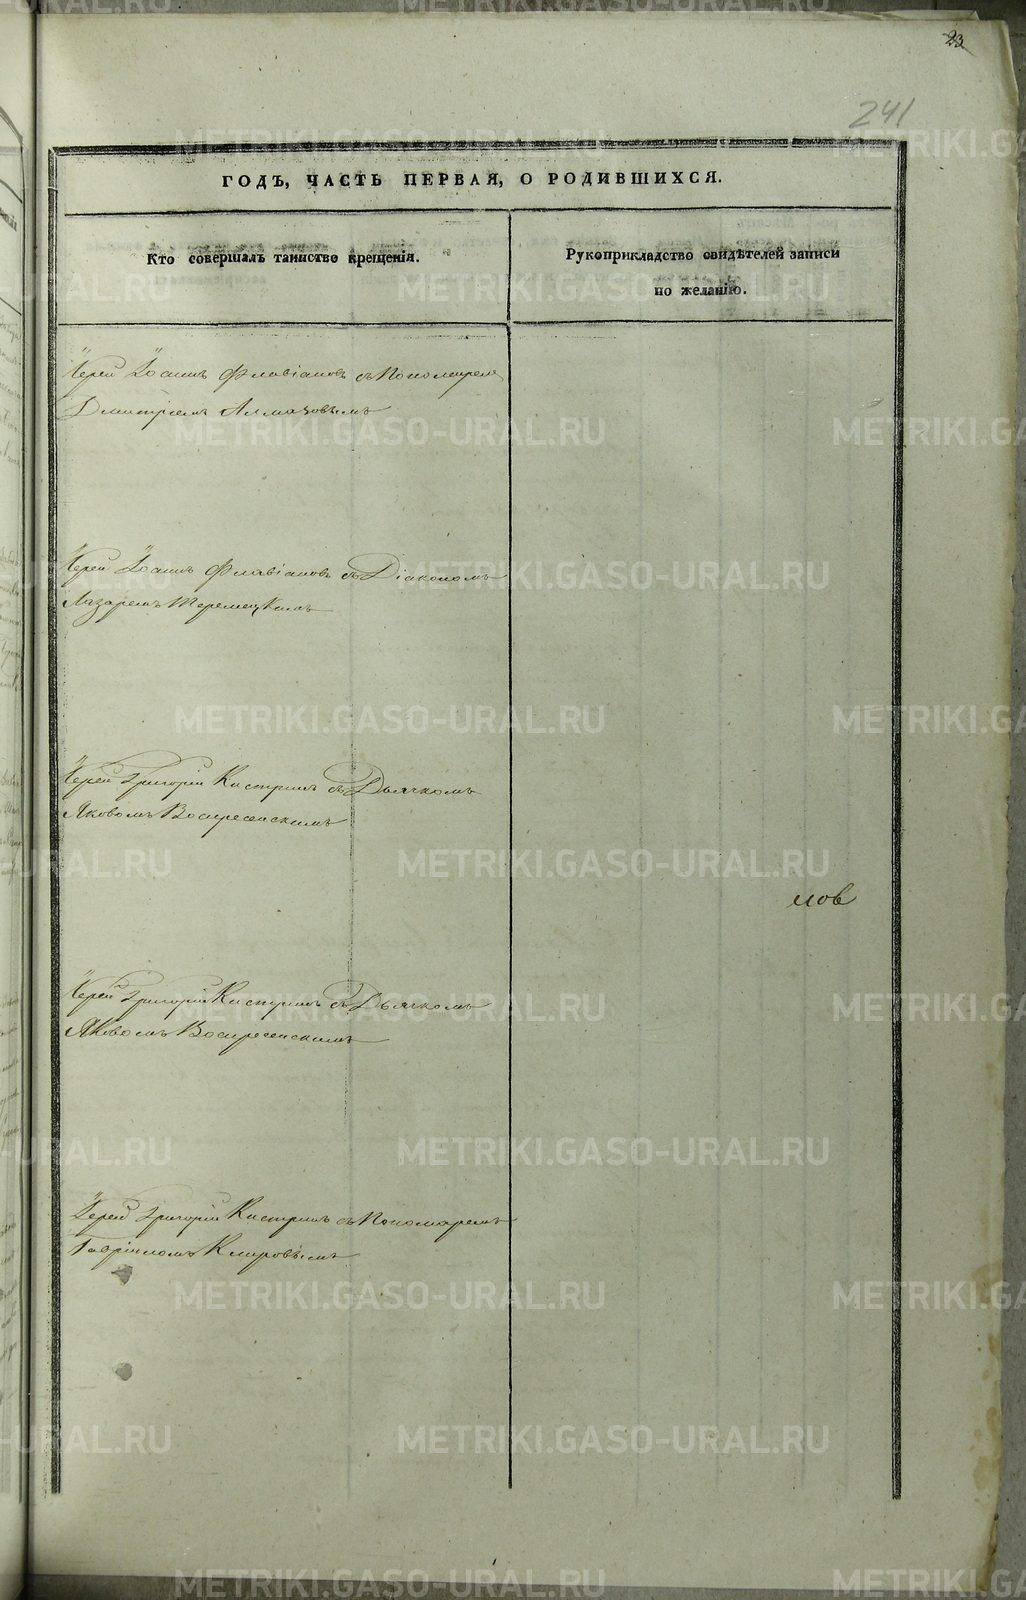 23
241
ГОДЪ, ЧАСТЬ ПЕРВАЯ, О РОДИВШИХСЯ.
Кто совершалъ таинство крещенія.
Рукоприкладство свидѣтелей записи
по желанію.
Іерей Іоаннъ Флавіановъ съ Пономаремъ
Дмитріемъ Алмазовымъ
Іерей Іоаннъ Флавіановъ съ Діакономъ
Лазаремъ Теремецкимъ
Іерей Григорій Кастринъ съ Дьячкомъ
Яковомъ Воскресенскимъ
мов
Іерей Григорій Кастринъ съ Дьячкомъ
Яковомъ Воскресенскимъ
Іерей Григорій Кастринъ съ Пономаремъ
Гавріиломъ Клировымъ
METRIKI.GASO-URAL.RU